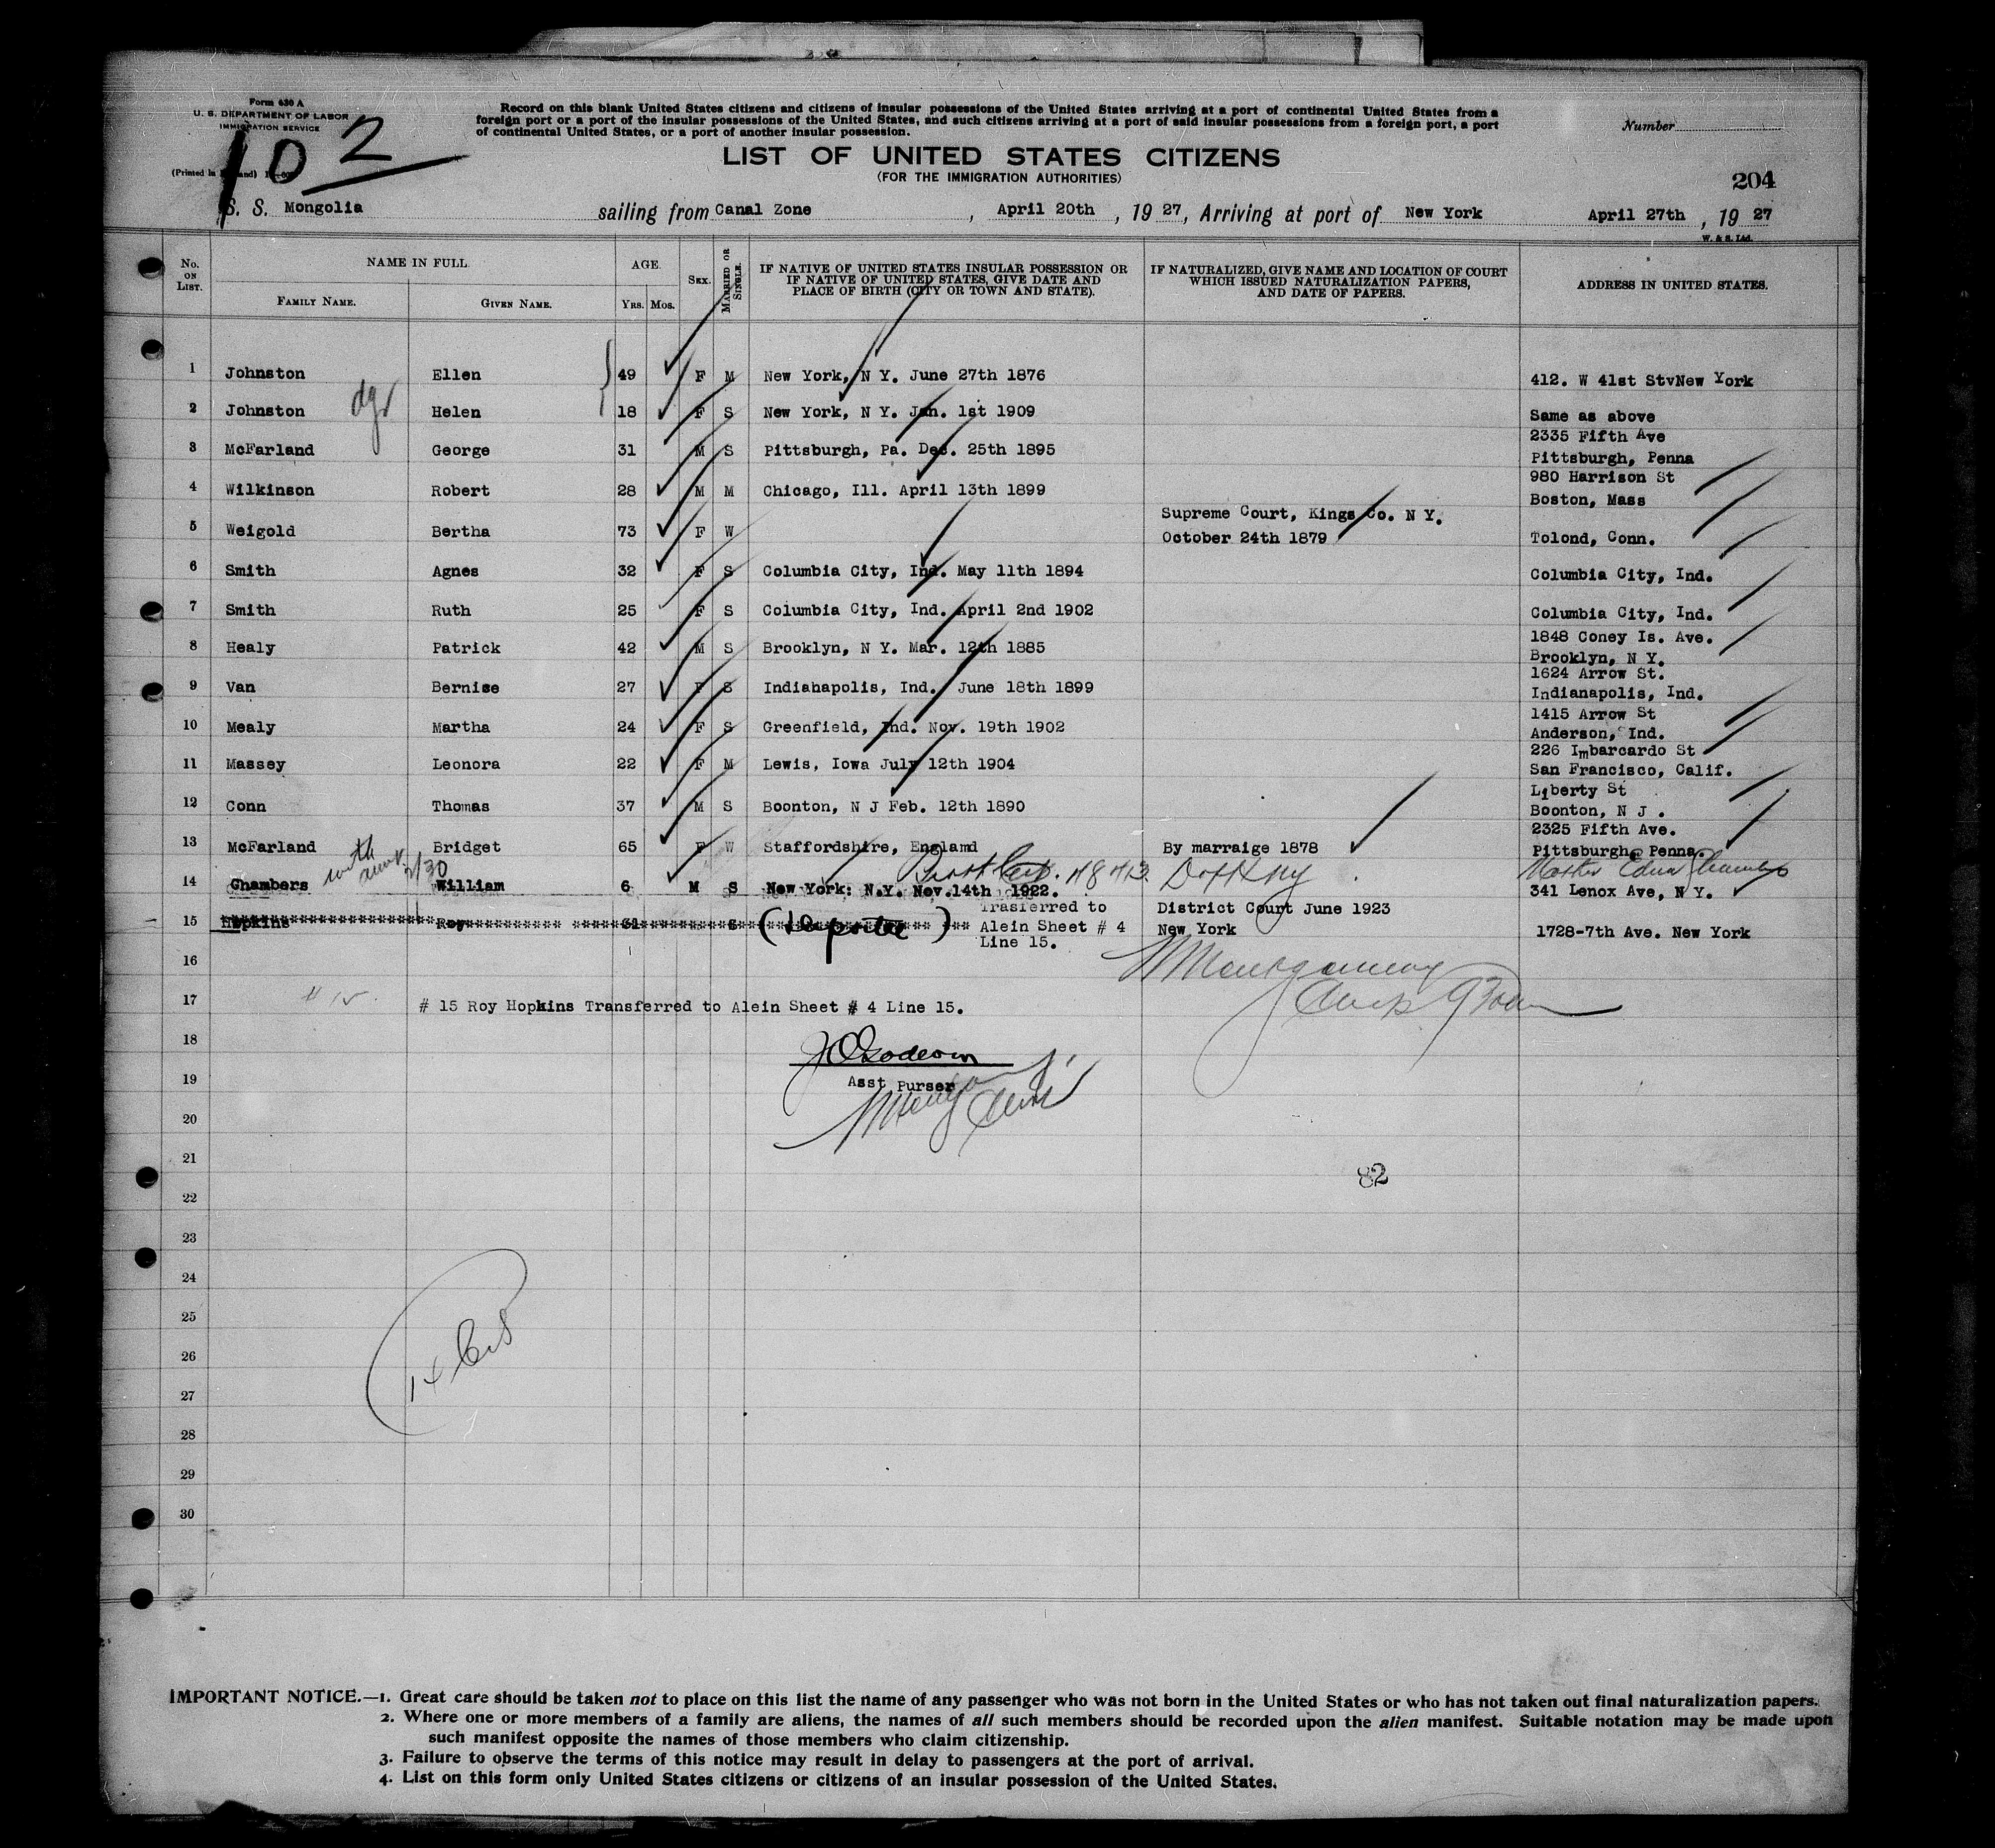 Form 630 A
U. S. DEPARTMENT OF LABOR
IMMIGRATION SERVICE
(Printed in
102
Record on this blank United States citizens and citizens of insular possessions of the United States arriving at a port of continental United States from a
foreign port or a port of the insular possessions of the United States, and such citizens arriving at a port of said insular possessions from a foreign port, a port
of continental United States, or a port of another insular possession.
Number
LIST OF UNITED STATES CITIZENS
(FOR THE IMMIGRATION AUTHORITIES)
204
S. S. Mongolia sailing from Canal Zone, April 20th, 19 27, Arriving at port of New York April 27th, 19 27
W. & S. Ltd.
No. ON LIST.
NAME IN FULL
FAMILY NAME. GIVEN NAME.
AGE
YRS. MOS.
SEX.
MARRIED OR SINGLE.
IF NATIVE OF UNITED STATES INSULAR POSSESSION OR
IF NATIVE OF UNITED STATES, GIVE DATE AND
PLACE OF BIRTH (CITY OR TOWN AND STATE).
IF NATURALIZED, GIVE NAME AND LOCATION OF COURT
WHICH ISSUED NATURALIZATION PAPERS,
AND DATE OF PAPERS.
ADDRESS IN UNITED STATES.
1 Johnston Ellen 49 F M New York, N Y. June 27th 1876 412. W 41st StvNew York
2 Johnston dgr Helen 18 F S New York, N Y. Jan. 1st 1909 Same as above
2335 Fifth Ave
3 McFarland George 31 M S Pittsburgh, Pa. Dec. 25th 1895 Pittsburgh, Penna
980 Harrison St
4 Wilkinson Robert 28 M M Chicago, Ill. April 13th 1899 Boston, Mass
Supreme Court, Kings Co. N Y.
5 Weigold Bertha 73 F W October 24th 1879 Tolond, Conn.
6 Smith Agnes 32 F S Columbia City, Ind. May 11th 1894 Columbia City, Ind.
7 Smith Ruth 25 F S Columbia City, Ind. April 2nd 1902 Columbia City, Ind.
1848 Coney Is. Ave.
8 Healy Patrick 42 M S Brooklyn, N Y. Mar. 12th 1885 Brooklyn, N Y.
1624 Arrow St.
9 Van Bernise 27 F S Indiahapolis, Ind. June 18th 1899 Indianapolis, Ind.
1415 Arrow St
10 Mealy Martha 24 F S Greenfield, Ind. Nov. 19th 1902 Anderson, Ind.
226 Imbarcardo St
11 Massey Leonora 22 F M Lewis, Iowa July 12th 1904 San Francisco, Calif.
Liberty St
12 Conn Thomas 37 M S Boonton, N J Feb. 12th 1890 Boonton, N J .
2325 Fifth Ave.
13 McFarland Bridget 65 F W Staffordshire, England By marraige 1878 Pittsburgh, Penna.
with aunt 2/30 Birth Cert. 48713 D of H NY Mother Edna Chambers
14 Chambers William 6 M S New York: N.Y. Nov.14th 1922. 341 Lenox Ave, N Y.
Trasferred to District Court June 1923
15 Hopkins Roy 31 S Alein Sheet # 4 New York 1728-7th Ave. New York
Line 15.
16
17 # 15 # 15 Roy Hopkins Transferred to Alein Sheet # 4 Line 15.
18
19 Asst Purser
20
21
82
22
23
24
25
26
27
28
29
30
IMPORTANT NOTICE.—1. Great care should be taken not to place on this list the name of any passenger who was not born in the United States or who has not taken out final naturalization papers.
2. Where one or more members of a family are aliens, the names of all such members should be recorded upon the alien manifest. Suitable notation may be made upon
such manifest opposite the names of those members who claim citizenship.
3. Failure to observe the terms of this notice may result in delay to passengers at the port of arrival.
4. List on this form only United States citizens or citizens of an insular possession of the United States.